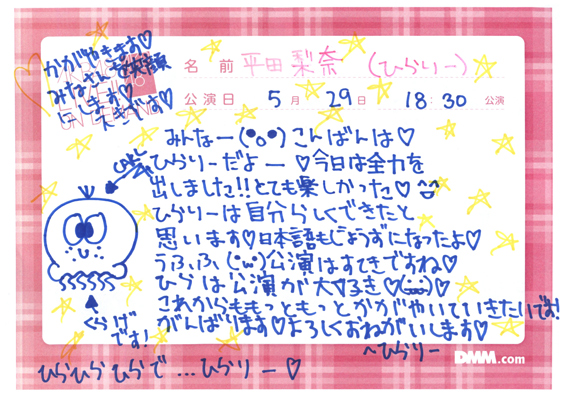 かがやきます♡
みなさんを笑顔
にします♡
えきです♡
名前 平田梨奈 (ひらりー)
公演日 5月 29日 18:30 公演
みんなー(•o•)こんばんは♡
ひらりーだよー ♡今日は全力を
出しました!!とても楽しかった♡
ひらりーは自分らしくできたと
思います♡日本語もじょうずになったよ♡
うふふ(•w•)公演はすてきですね♡
ひらは公演が大♡るき♡
これからももっともっとかがやいていきたいです!
がんばります♡よろしくおねがいします♡
〜ひらりー
くらげ
です!
DMM.com
ひらひらひらで...ひらりー♡